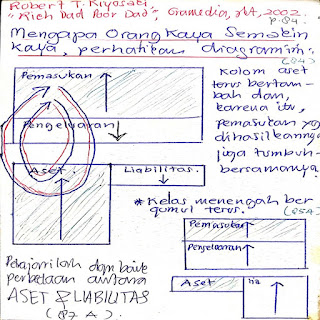 Robert T. Kiyosaki,
"Rich Dad Poor Dad", Gramedia, JKT, 2002.
p. 84.
Mengapa Orang Kaya Semakin
Kaya, perhatikan diagram ini:
(84)
Pemasukan
Pengeluaran
Aset
Liabilitas.
Kolom aset
terus bertam-
bah dan,
karena itu,
pemasukan yg
dihasilkannya
juga tumbuh
bersamanya.
* Kelas menengah ber
gumul terus.
(85A)
Pemasukan
Pengeluaran
Aset
lia
Pelajarilah dam baik
perbedaan antara
ASET & LIABILITAS
(87 A).